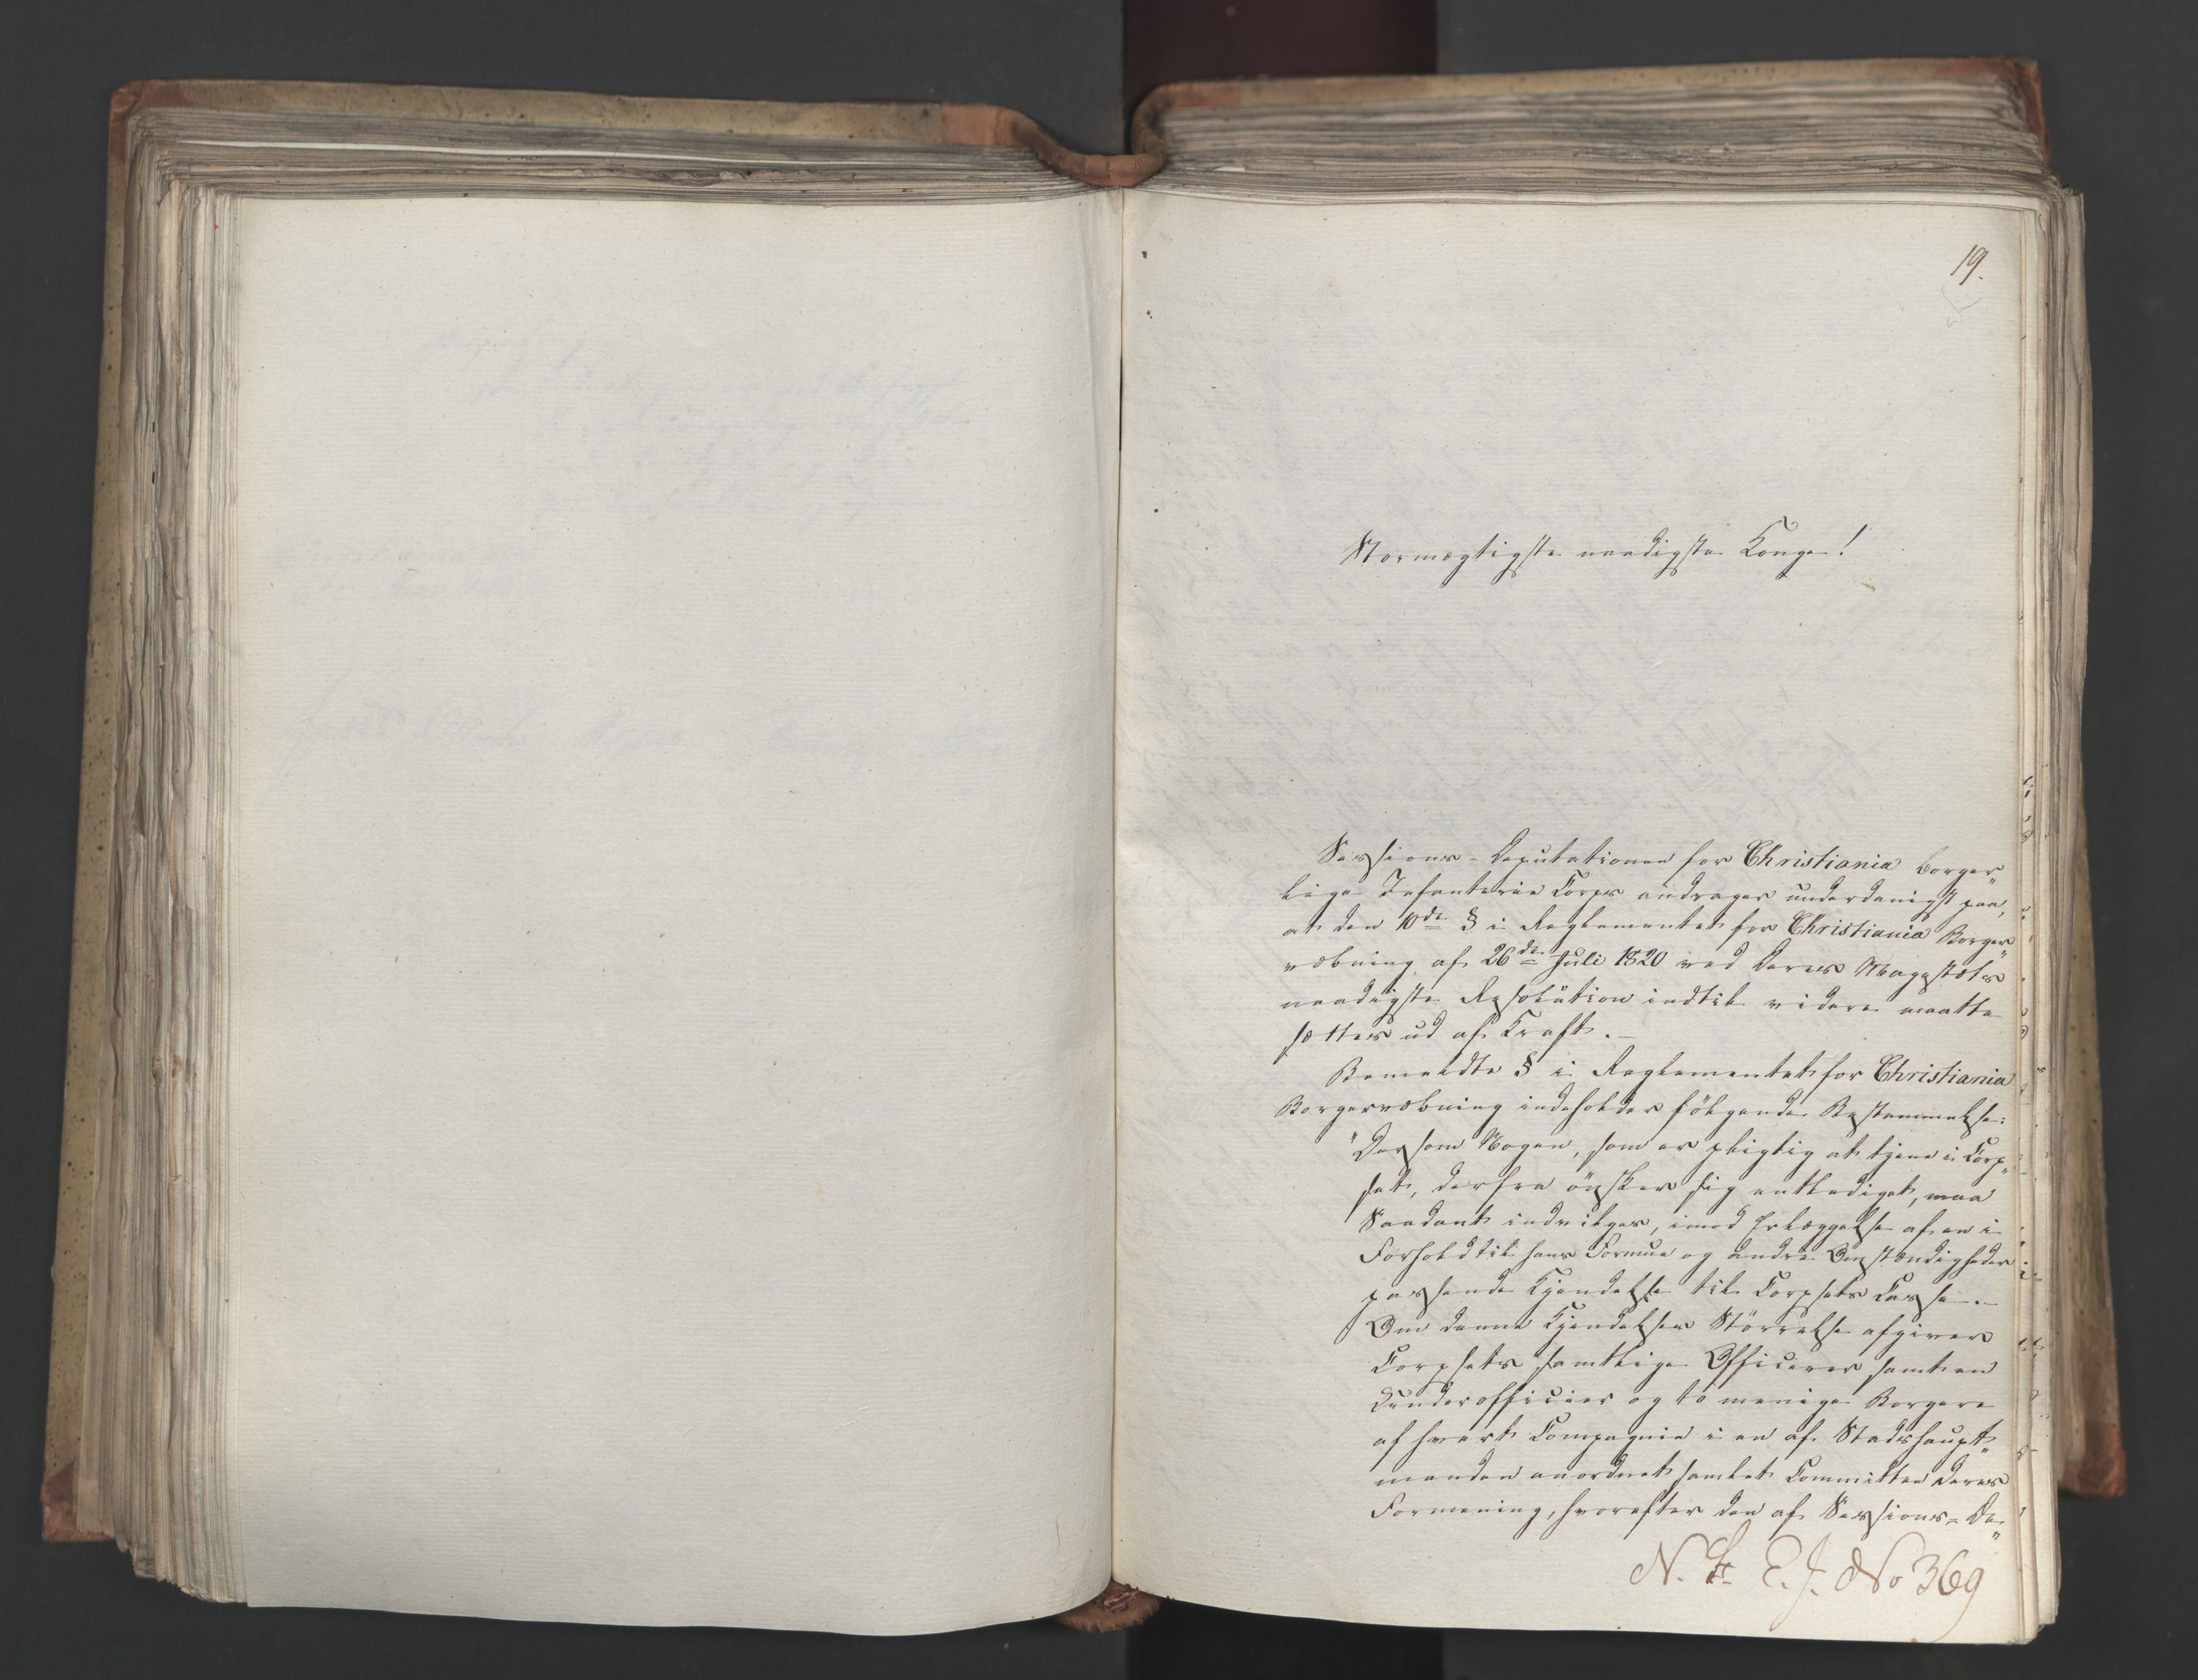 19.
Stormægtigste naadigste Konge!
Sessions-Deputationen for Christiania borger„
lige Infanterie Corps andrager underdanigst paa,
at den 10de § i Reglementet for Christiania Borger„
væbning af 26de Juli 1820 ved Deres Majestæts
naadigste Resolution indtil videre maatte
sættes ud af Kraft.-
Bemeldte § i Reglementet for Christiania
Borgervæbning indeholder følgende Bestemmelse:
"Dersom Nogen, som er pligtig at tjene i Corp„
set, derfra ønsker sig entlediget, maa
Saadant indvilges, imod Erlæggelse af en i
Forhold til hans Formue og andre Omstændigheder
passende Kjendelse til Corpsets Casse.-
Om denne Kjendelses Størrelse afgiver
Corpsets samtlige Officerer samt en
Underofficier og to menige Borgere
af hvert Compagnie i en af Stadshaupt„
manden anordnet samlet Committee deres
Formening, hvorefter den af Sessions-De„
N. E. J. No 369